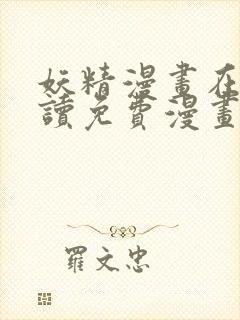 妖精漫畫在
讀免費漫畫
羅文忠